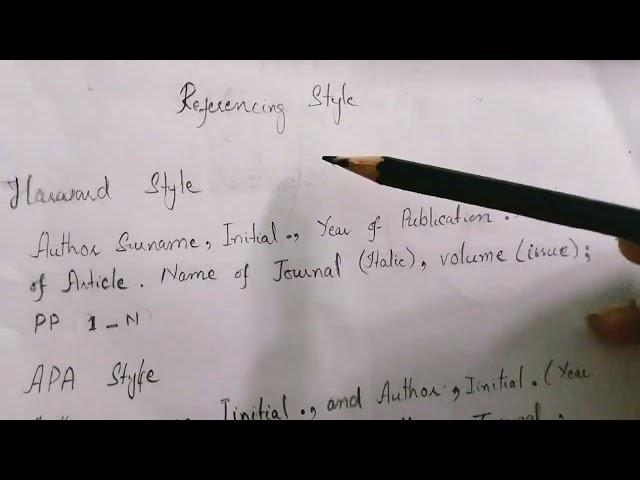 Referencing Style
Harvard Style
Author Surname, Initial., Year of Publication.
of Article. Name of Journal (Italic), volume (issue);
PP 1-N
APA Style
Initial., and Author., Initial. (Year
Journal,